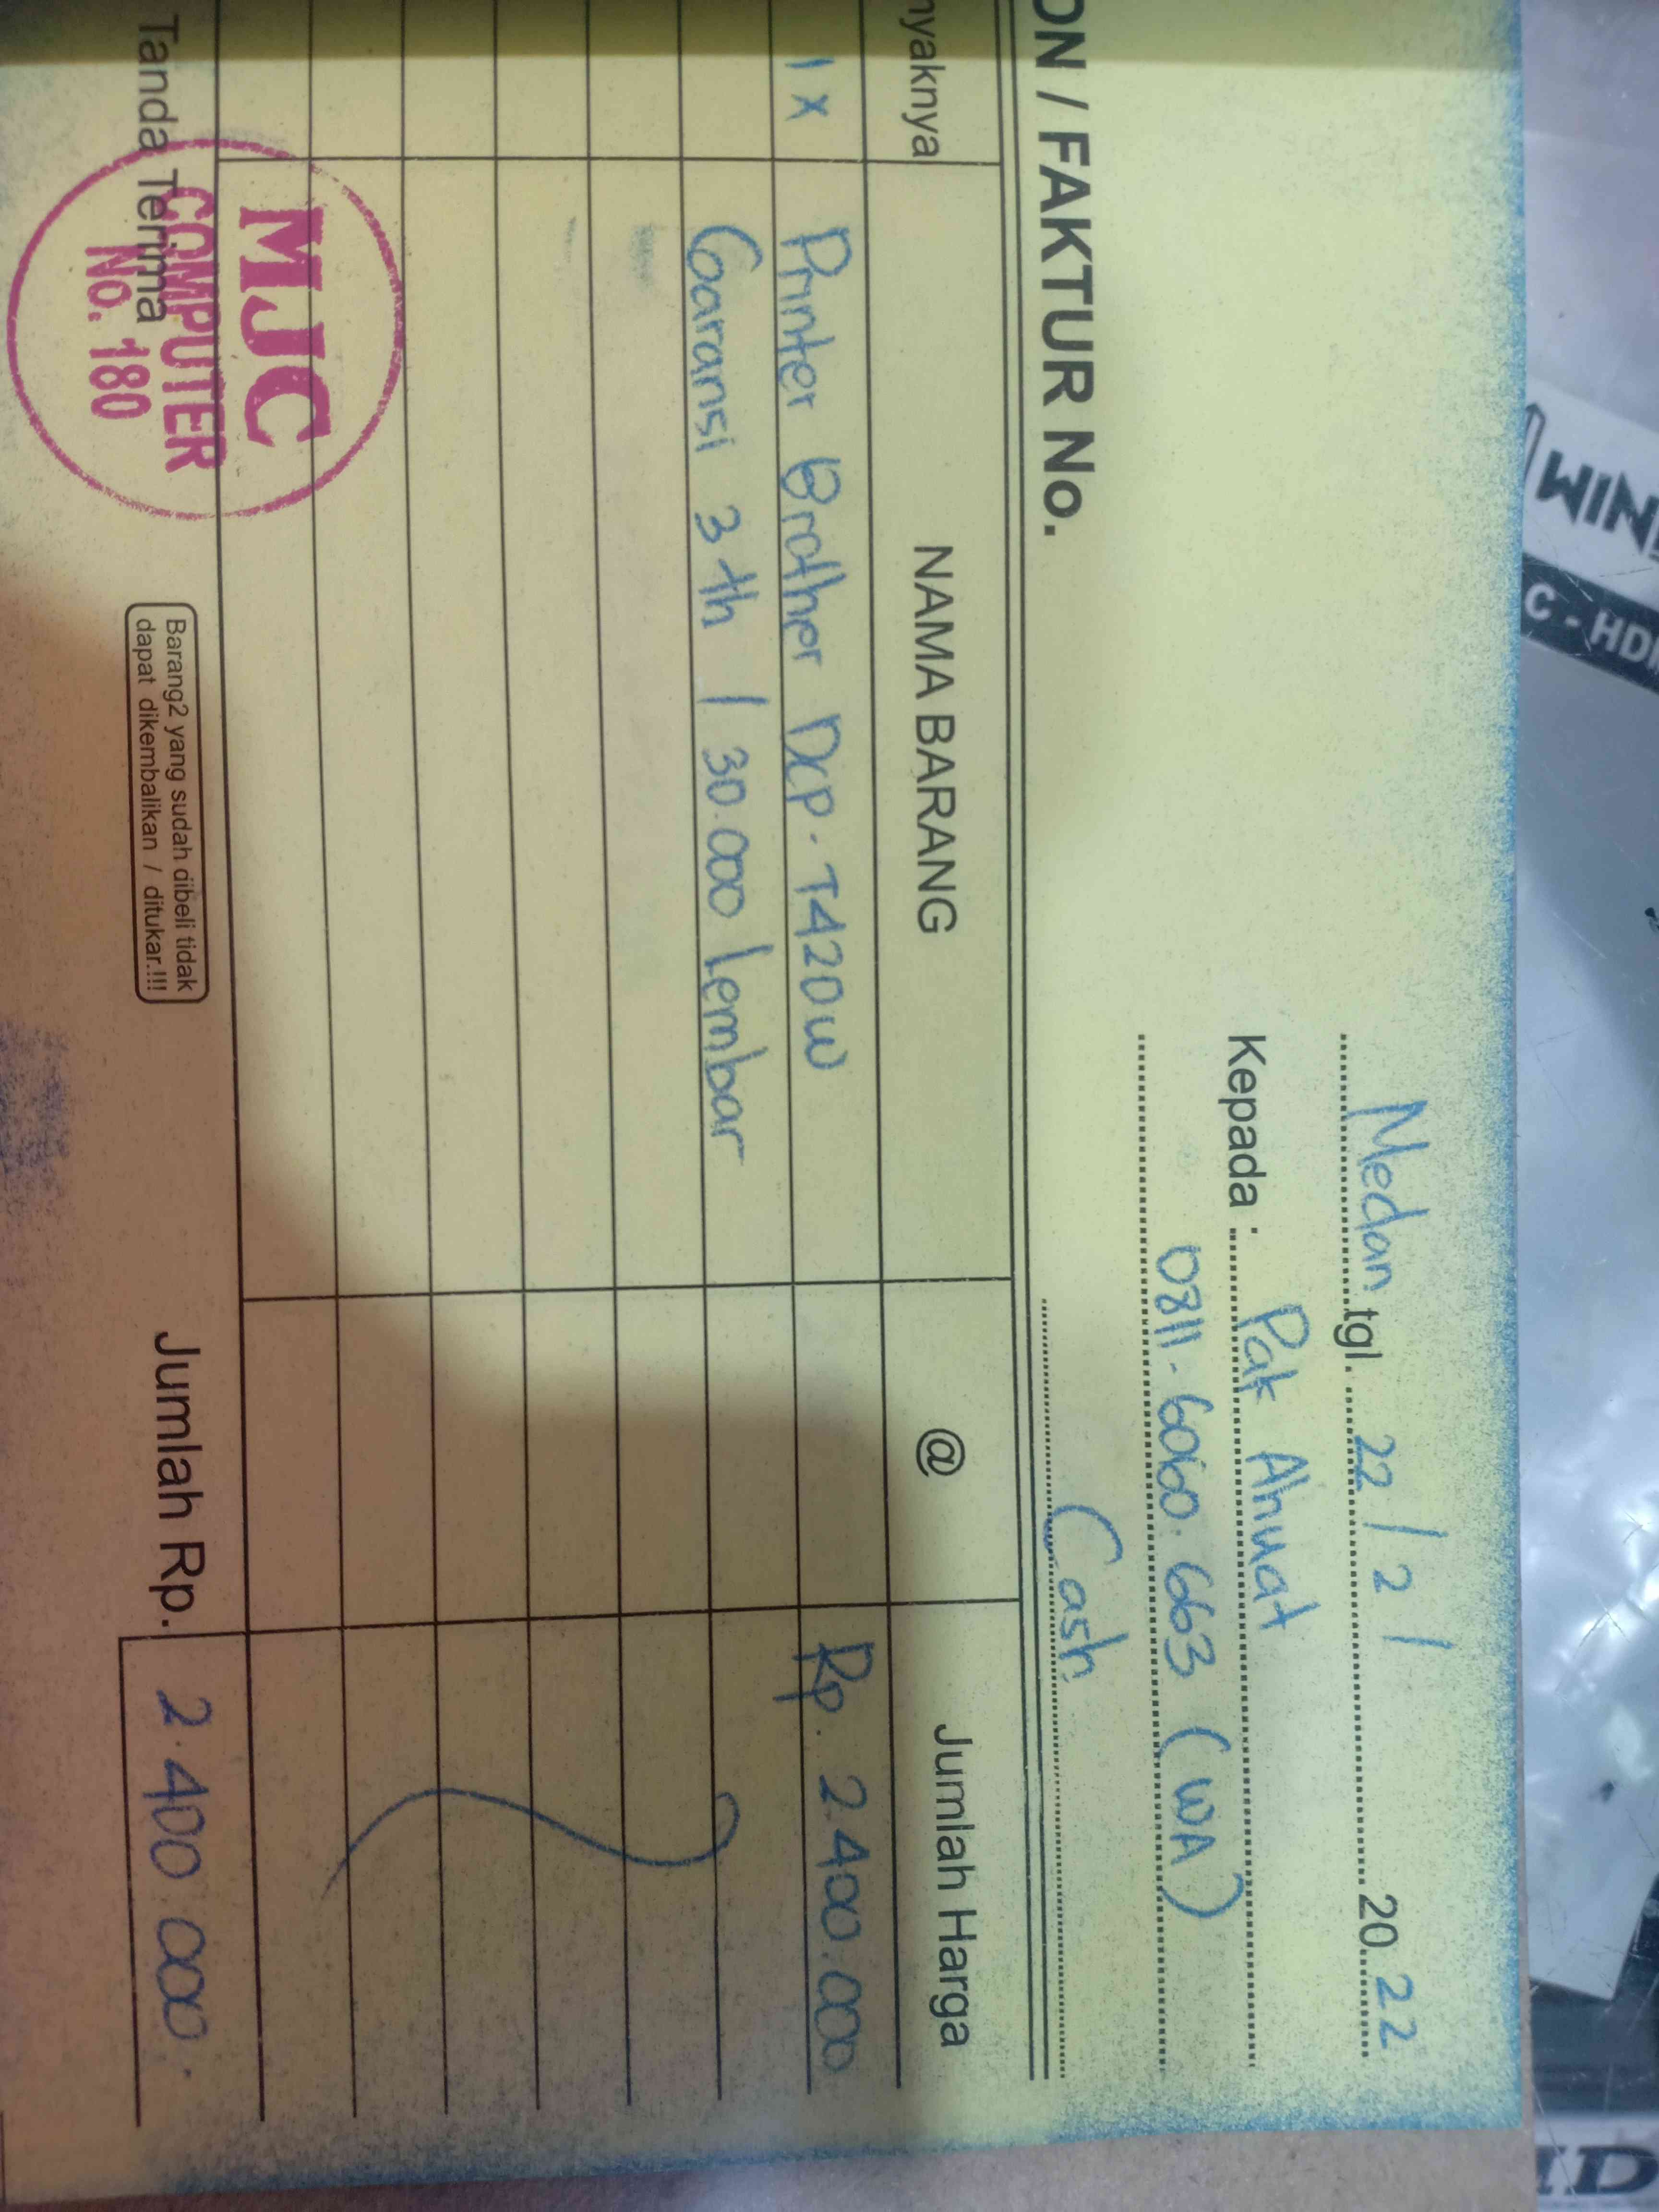 Medan tgl. 22 / 2 / 20 22
Kepada : Pak Ahuat
0811-6060.663 (WA)
ON / FAKTUR No.
Cash
nyaknya NAMA BARANG @ Jumlah Harga
1 x Printer Brother DCP-T420W Rp. 2.400.000
Garansi 3 th / 30.000 lembar
Tanda Terima
MJC
COMPUTER
No. 180
Barang2 yang sudah dibeli tidak
dapat dikembalikan / ditukar.!!!
Jumlah Rp. 2.400.000.
WIN
C - HDM